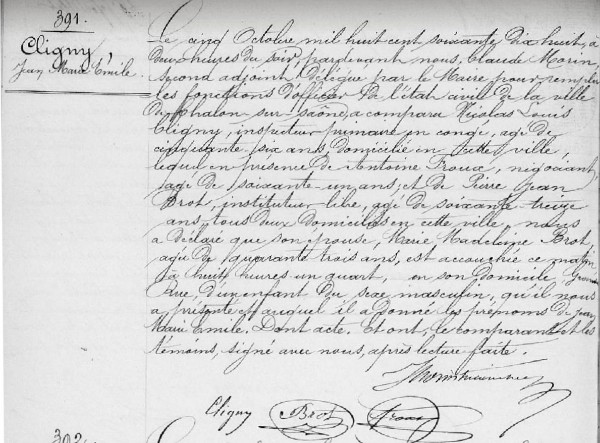 391.
Cligny
Jean Marie Emile.
Le cinq Octobre mil huit cent soixante dix huit, à
deux heures du soir, pardevant nous, Claude Morin,
second adjoint délégué par le Maire pour remplir
les fonctions d'officier de l'état civil de la ville
de Chalon sur Saône, a comparu Nicolas Louis
Cligny, inspecteur primaire en congé, agé de
cinquante six ans, domicilié en cette ville,
lequel en présence de Antoine Froux, négociant,
agé de soixante-un ans, et de Pierre Jean
Brot, instituteur libre, agé de soixante-treize
ans, tous deux domiciliés en cette ville, nous
a déclaré que son épouse, Marie Madeleine Brot,
agée de quarante trois ans, est accouchée ce matin
à huit heures un quart, en son domicile Grande
Rue, d'un enfant du sexe masculin, qu'il nous
a présenté et auquel il a donné les prénoms de Jean
Marie Emile. Dont acte. Et ont, le comparant et les
témoins, signé avec nous, après lecture faite.
Cligny Brot Froux
392.